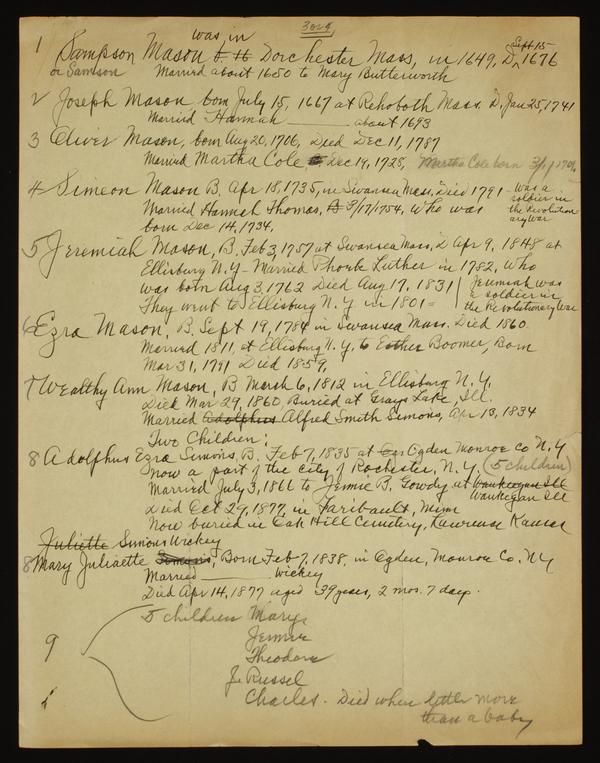 3 of 9
was in
1 Sampson Mason b. 16 Dorchester Mass, in 1649, D. Sept 15 1676
or Samson Married about 1650 to Mary Butterworth
2 Joseph Mason, born July 15, 1667 at Rehoboth Mass. D, Jan 25, 1741
Married Hannah ——— about 1693
3 Oliver Mason, born Aug 20, 1706, Died Dec 11, 1787
Married Martha Cole Dec 14, 1728, Martha Cole born 3/1/1706
4 Simeon Mason B. Apr 18, 1735, in Swansea Mass. Died 1791 - was a
soldier in
Married Hannah Thomas, B 3/17/1754, who was the Revolution-
born Dec 14, 1734. ary War
5 Jeremiah Mason, B. Feb 3, 1757 at Swansea Mass, D Apr 9, 1848 at
Ellisburg N.Y - Married Phoebe Luther in 1782, who
was born Aug 3, 1762 Died Aug 17, 1831 Jeremiah was
a soldier in
They went to Ellisburg N.Y in 1801 = the Revolutionary War
6 Ezra Mason, B. Sept 19, 1784 in Swansea Mass. Died 1860
Married 1811, at Ellisburg N.Y. to Esther Boomer, Born
Mar 31, 1791 Died 1859,
7 Wealthy Ann Mason, B March 6, 1812 in Ellisburg N.Y.
Died Mar 29, 1860 Buried at Grays Lake, Ill.
Married Adolphus Alfred Smith Simons, Apr 13, 1834
Two Children:
8 Adolphus Ezra Simons, B. Feb 7, 1835 at Ogden Monroe Co N.Y
now a part of the city of Rochester, N.Y. (5 children)
Married July 3, 1866 to Jennie B. Gowdy at Waukeegan Ill
Waukegan Ill
Died Oct 29, 1877, in Faribault, Minn
Now buried in Oak Hill Cemetery, Lawrence Kansas
Juliette Simons Wickey
8 Mary Juliaette Simons, Born Feb 7, 1838, in Ogden, Monroe Co. NY
Married ——— Wickey
Died Apr 14, 1877 aged 39 years, 2 mos. 7 days.
5 children Mary
Jennie
9 Theodore
J. Russel
Charles. Died when little more
than a baby